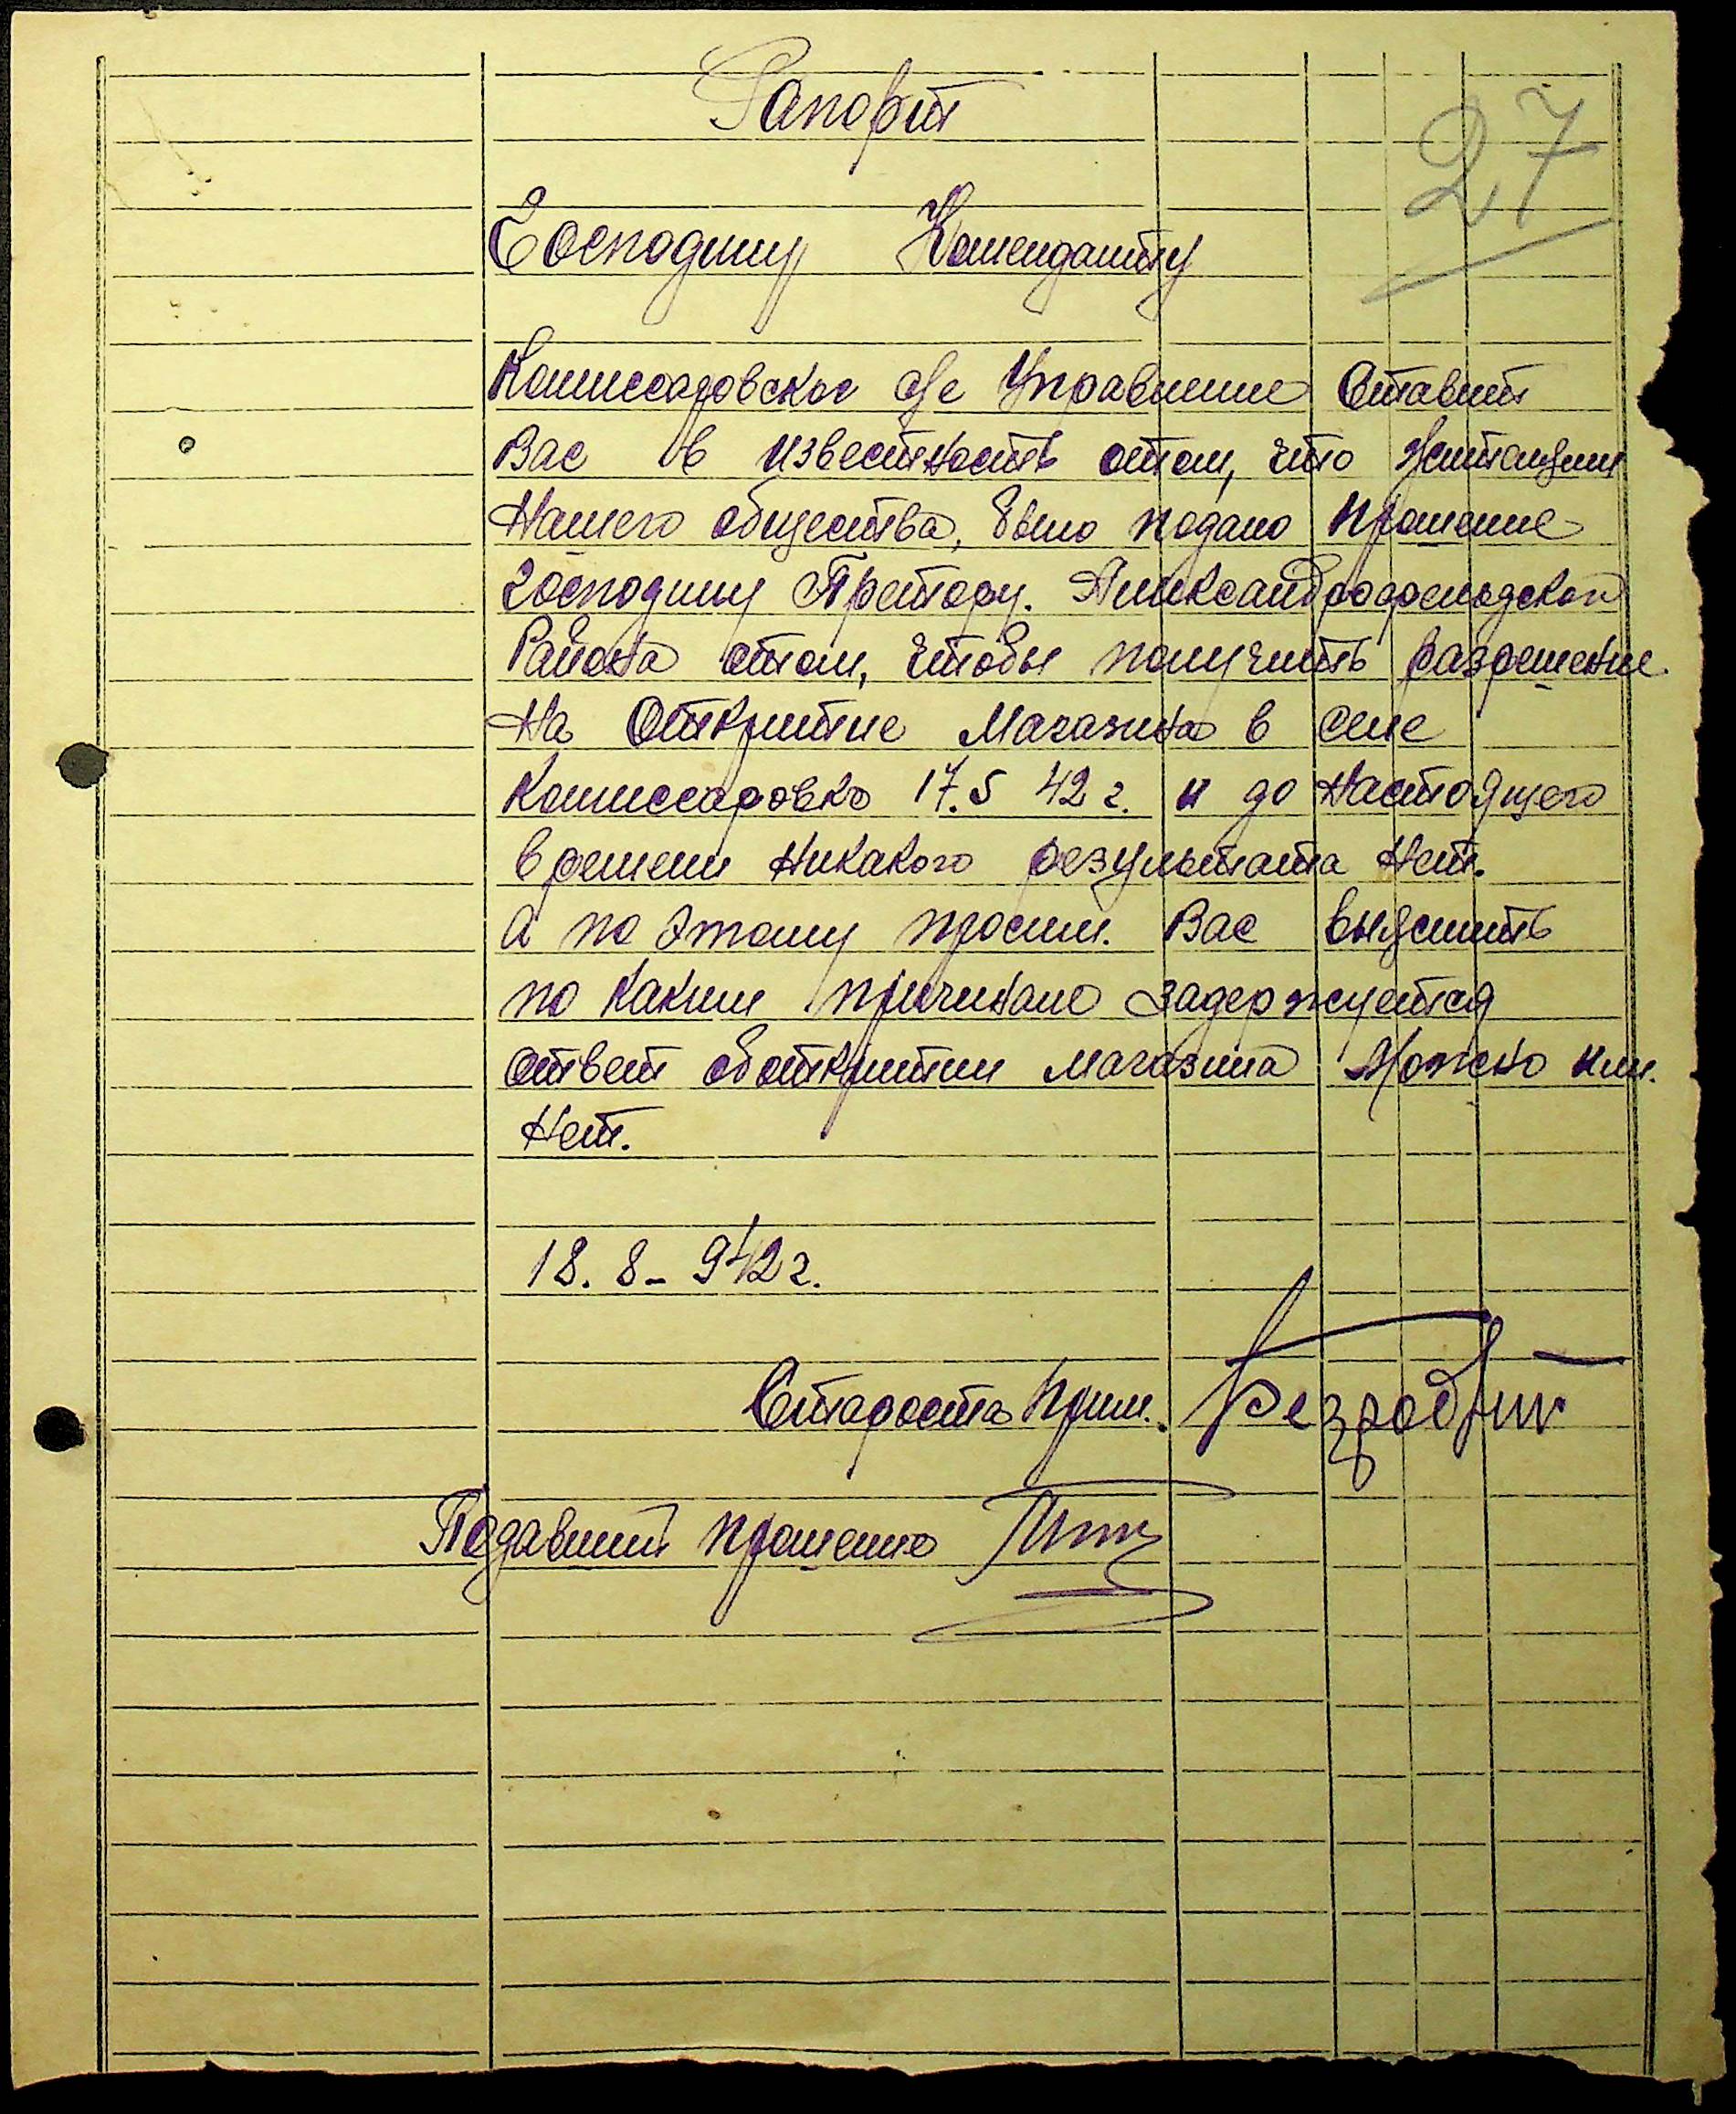 Рапорт
27
Господину Коменданту
Комиссаровское Управление Ставит
Вас в известность отом, что
Нашего общества, было подано прошение
господину Претору. Александрофельдской
Района отом, чтобы получить разрешение
На Открытие Магазина в селе
Комиссаровка 17.5 42 г. и до Настоящего
времени никакого результата Нет.
А по этому просим. Вас выяснить
по каким причинам задержуется
ответ оботкрытии магазина Можно или.
Нет.
18. 8- 942 г.
Староста прим. Безродний
Подавший прошение